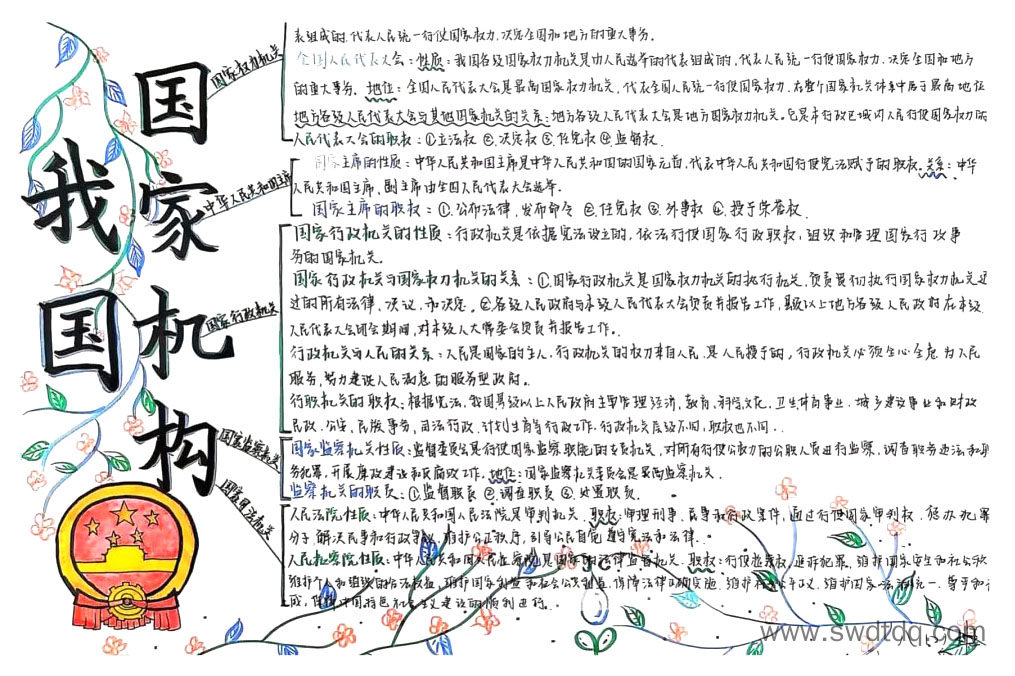 我国
国家机构
国家权力机关
表组成的,代表人民统一行使国家权力,决定全国和地方的重大事务。
全国人民代表大会:性质:我国各级国家权力机关是由人民选举的代表组成的,代表人民统一行使国家权力,决定全国和地方
的重大事务。地位:全国人民代表大会是最高国家权力机关,代表全国人民统一行使国家权力,在整个国家机关体系中居于最高地位
地方各级人民代表大会与其他国家机关的关系:地方各级人民代表大会是地方国家权力机关。它是本行政区域内人民行使国家权力的
人民代表大会的职权:①立法权 ②决定权 ③任免权 ④监督权.
中华人民共和国主席
国家主席的性质:中华人民共和国主席是中华人民共和国的国家元首,代表中华人民共和国行使宪法赋予的职权.关系:中华
人民共和国主席、副主席由全国人民代表大会选举。
国家主席的职权:①.公布法律,发布命令 ②.任免权 ③.外事权 ④.授予荣誉权.
国家行政机关
国家行政机关的性质:行政机关是依据宪法设立的,依法行使国家行政职权,组织和管理国家行政事
务的国家机关。
国家行政机关与国家权力机关的关系:①国家行政机关是国家权力机关的执行机关,负责贯彻执行国家权力机关通
过的所有法律、决议、和决定。②各级人民政府与本级人民代表大会负责并报告工作,县级以上地方各级人民政府在本级
人民代表大会闭会期间,对本级人大常委会负责并报告工作。
行政机关与人民的关系:人民是国家的主人,行政机关的权力来自人民,是人民授予的。行政机关必须全心全意为人民
服务,努力建设人民满意的服务型政府。
行职机关的职权:根据宪法,我国县级以上人民政府主要管理经济、教育、科学文化、卫生体育事业、城乡建设事业和财政
民政、公安、民族事务、司法行政、计划生育等行政工作。行政机关层级不同,职权也不同.
国家监察机关
国家监察机关性质:监督委员是行使国家监察职能的专责机关,对所有行使公权力的公职人员进行监察,调查职务违法和职
务犯罪,开展廉政建设和反腐败工作.地位:国家监察机关委员会是最高监察机关.
监察机关的职责:①监督职责 ②调查职责 ③处置职责.
国家司法机关
人民法院性质:中华人民共和国人民法院是审判机关.职权:审理刑事、民事和行政案件,通过行使国家审判权,惩办犯罪
分子解决民事和行政争议,维护公正秩序,引导公民自觉遵守宪法和法律.
人民检察院性质:中华人民共和国人民检察院是国家的法律监督机关.职权:行使检察权,追诉犯罪,维护国家安全和社会秩
维护个人和组织的合法权益,维护国家利益和社会公共利益,保障法律正确实施,维护社会公平正义,维护国家法制统一、尊严和
成,保障中国特色社会主义建设的顺利进行.
www.swdtdq.com